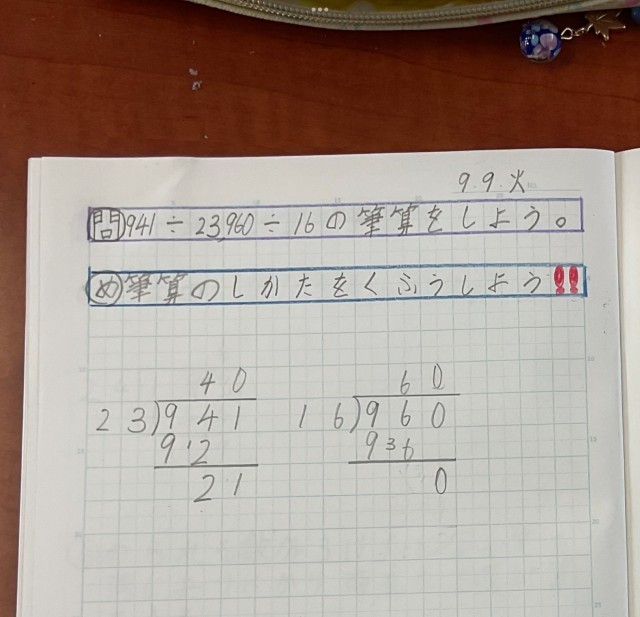 9.9.火
問 941÷23,960÷16の筆算をしよう。
め 筆算のしかたをくふうしよう!!
40
23)941
92
21
60
16)960
96
0